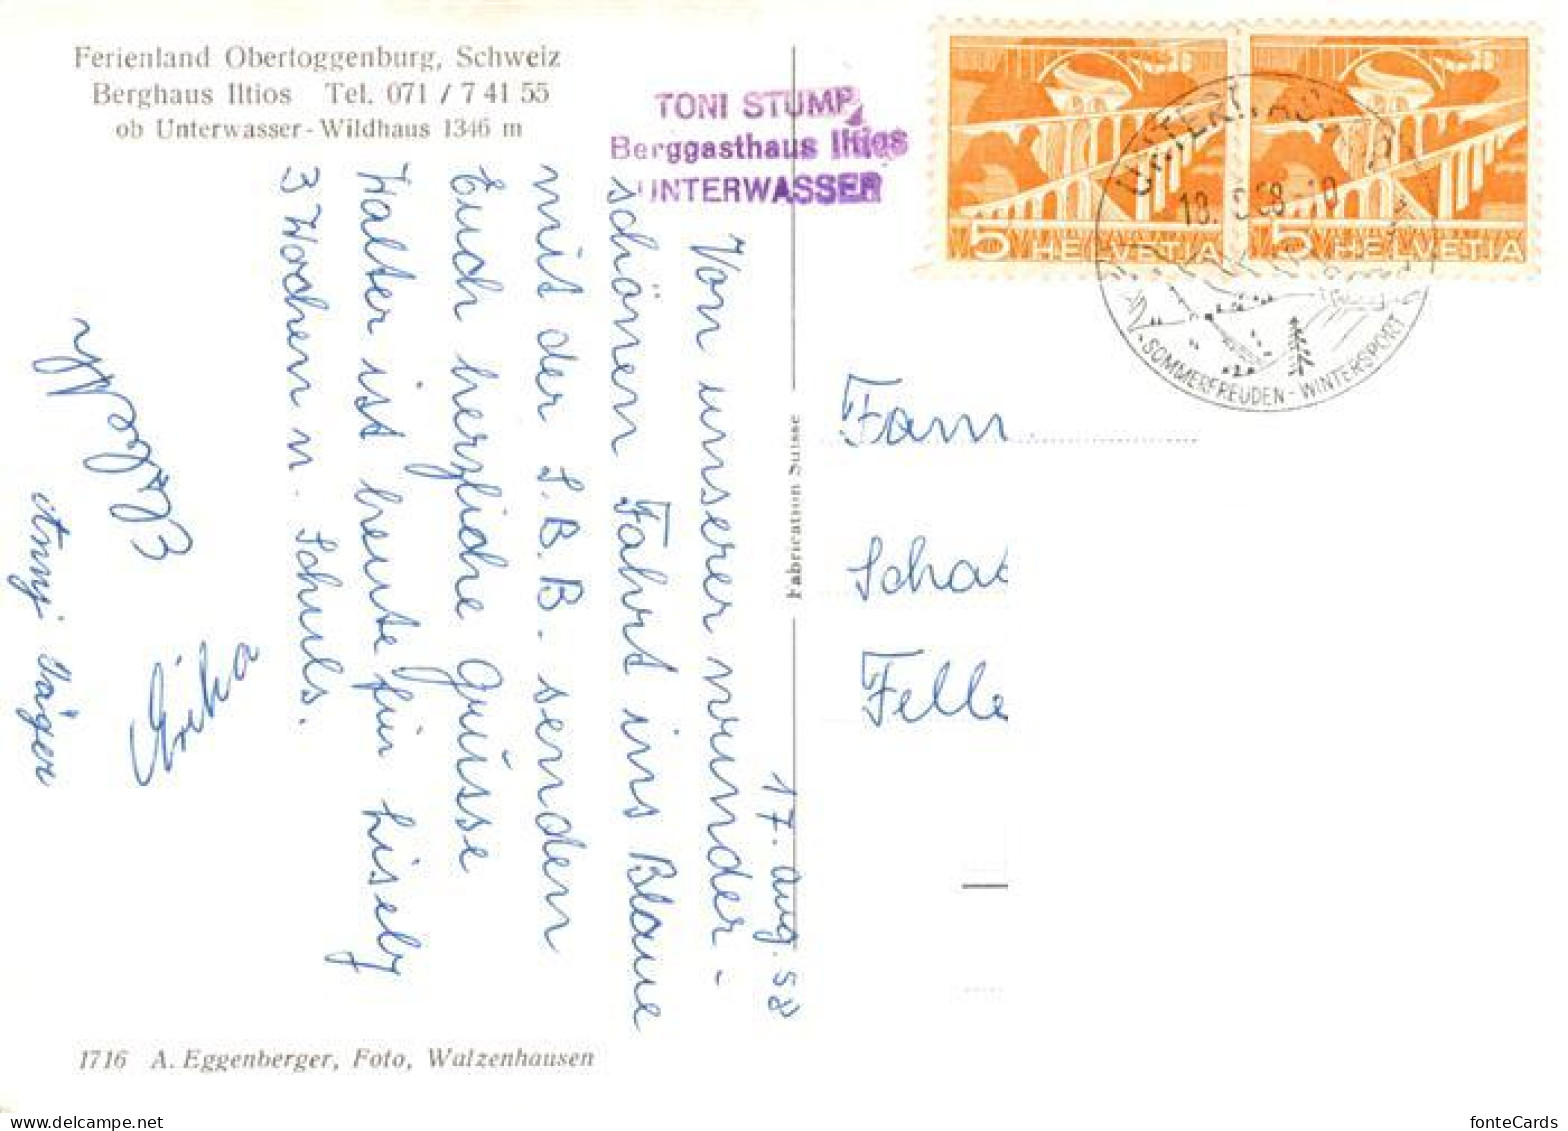 Ferienland Obertoggenburg, Schweiz
Berghaus Iltios Tel. 071 / 7 41 55
ob Unterwasser - Wildhaus 1346 m
TONI STUMP
Berggasthaus Iltios
UNTERWASSER
5 HELVETIA
5 HELVETIA
UNTERWASSER
18. 58-10
SOMMERFREUDEN - WINTERSPORT
17. Aug. 58
Von unserer wunder-
schönen Fahrt ins Blaue
mit der S.B.B. senden
Euch herzliche Grüsse
Walter ist heute für Lisely
3 Wochen n. Schuls.
Erika
Anny Jäger
Fam
Scha
Felle
Fabrication Suisse
1716 A. Eggenberger, Foto, Walzenhausen
fonteCards
www.delcampe.net